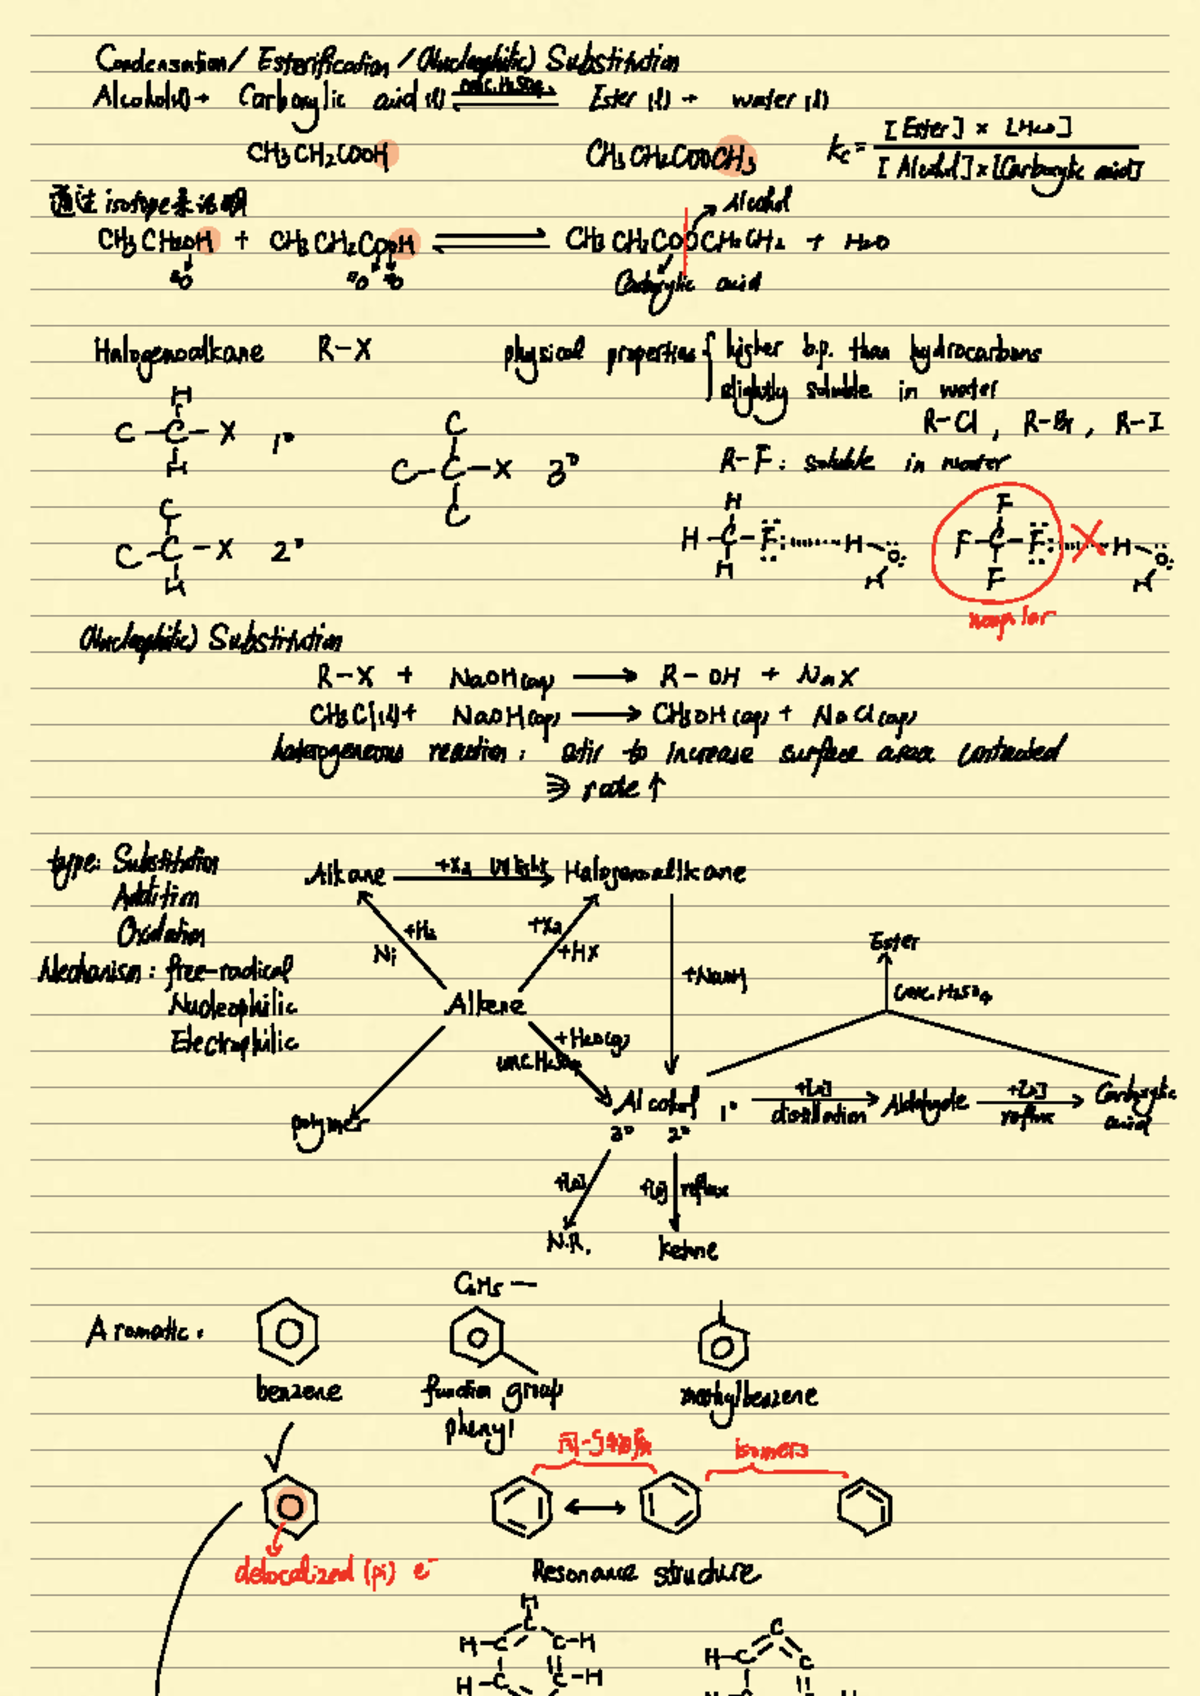 Condensation / Esterification / (Nucleophilic) Substitution
Alcohol(l) + Carboxylic acid (l) conc. H2SO4 Ester (l) + water (l)
CH3CH2COOH CH3CH2COOCH3 Kc = [Ester] x [H2O] / [Alcohol] x [Carboxylic acid]
通过 isotope 来说明
Alcohol
CH3CH2OH + CH3CH2COOH ⇌ CH3CH2COOCH2CH2 + H2O
Carboxylic acid
Halogenoalkane R-X physical properties { higher b.p. than hydrocarbons
slightly soluble in water
R-Cl, R-Br, R-I
C-C-X 1° H H
C-C-X 3° C C
R-F: soluble in water
C-C-X 2° C H
H-C-F: H H H O: H
F-C-F: F F X H O: H
nonpolar
(Nucleophilic) Substitution
R-X + NaOH(aq) → R-OH + NaX
CH3Cl(l) + NaOH(aq) → CH3OH(aq) + NaCl(aq)
heterogeneous reaction: stir to increase surface area contacted
⇒ rate ↑
type: Substitution
Addition
Oxidation
Mechanism: free-radical
Nucleophilic
Electrophilic
Alkane +X2 UV light → Halogenoalkane
+H2 Ni
+X2 +HX
+NaOH
Ester
conc. H2SO4
Alkene
+H2O(g)
conc. H2SO4
polymer
Alcohol 1° +[O] distillation → Aldehyde +[O] reflux → Carboxylic acid
3° 2°
+[O] +[O] reflux
N.R. ketone
C6H5 —
Aromatic:
benzene function group methylbenzene
phenyl
isomers
delocalized (pi) e⁻ Resonance structure
H
H-C C C-H
H-C C-H
C
H-C C
H H